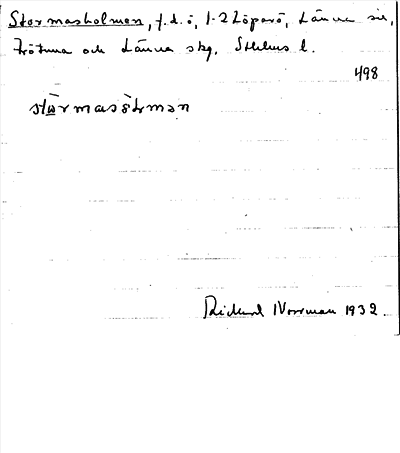 Stormasholmen, f.d. ö, 1-2 Löparö, Länna sn,
Frötuna och Länna skg, Sthlms l.
498
stò̱rmaså̀lmən
Rickard Norrman 1932.